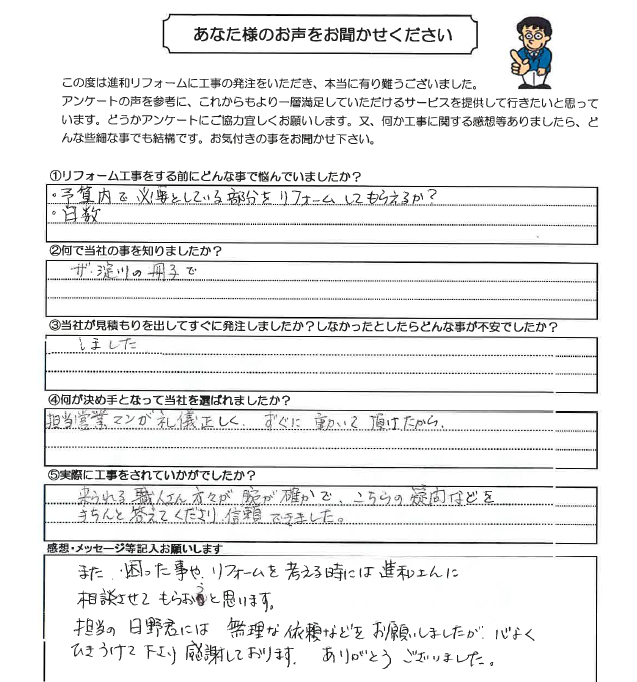 あなた様のお声をお聞かせください
この度は進和リフォームに工事の発注をいただき、本当に有り難うございました。
アンケートの声を参考に、これからもより一層満足していただけるサービスを提供して行きたいと思って
います。どうかアンケートにご協力宜しくお願いします。又、何か工事に関する感想等ありましたら、ど
んな些細な事でも結構です。お気付きの事をお聞かせ下さい。
①リフォーム工事をする前にどんな事で悩んでいましたか？
・予算内で必要としている部分をリフォームしてもらえるか？
・日数
②何で当社の事を知りましたか？
ザ・淀川の冊子で
③当社が見積もりを出してすぐに発注しましたか？しなかったとしたらどんな事が不安でしたか？
しました
④何が決め手となって当社を選ばれましたか？
担当営業マンが礼儀正しく、すぐに動いて頂けたから。
⑤実際に工事をされていかがでしたか？
来られる職人さん方々が腕が確かで、こちらの疑問などを
きちんと答えてくださり信頼できました。
感想・メッセージ等記入お願いします
また、困った事や、リフォームを考える時には進和さんに
相談させてもらおうと思います。
担当の日野君には無理な依頼などをお願いしましたが、心よく
ひきうけて下さり感謝しております。ありがとうございました。